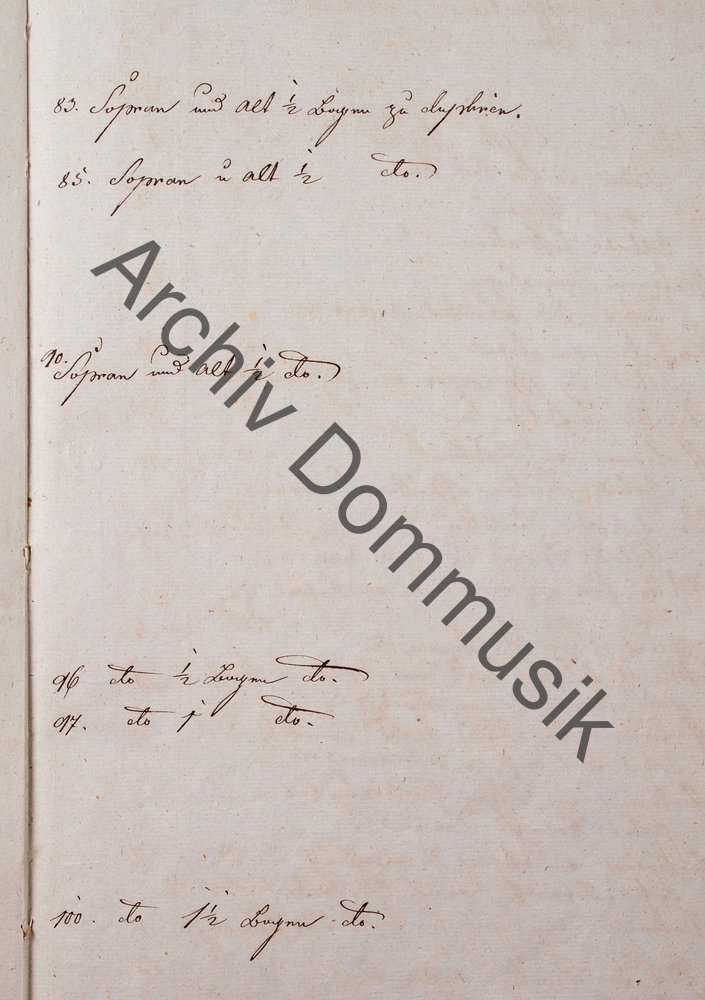 83. Sopran und alt ½ Bogen zu dupliren.
85. Sopran u alt ½ do.
90. Sopran und alt ½ do.
Archiv Dommusik
96 do ½ Bogen do.
97. do 1 do.
100. do 1½ Bogen do.